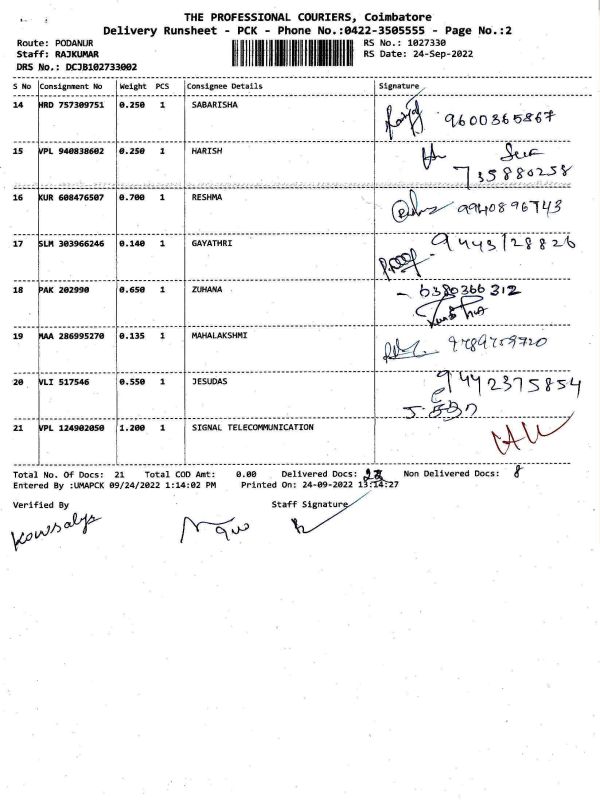 THE PROFESSIONAL COURIERS, Coimbatore
Delivery Runsheet - PCK - Phone No.:0422-3505555 - Page No.:2
Route: PODANUR RS No.: 1027330
Staff: RAJKUMAR RS Date: 24-Sep-2022
DRS No.: DCJB102733002
S No Consignment No Weight PCS Consignee Details Signature
14 HRD 757309751 0.250 1 SABARISHA 9600365867
15 VPL 940838602 0.250 1 HARISH
735880258
16 KUR 608476507 0.700 1 RESHMA 9940896743
17 SLM 303966246 0.140 1 GAYATHRI 9443128826
18 PAK 202990 0.650 1 ZUHANA 6380366312
19 MAA 286995270 0.135 1 MAHALAKSHMI
20 VLI 517546 0.550 1 JESUDAS 9442375854
21 VPL 124902050 1.200 1 SIGNAL TELECOMMUNICATION
Total No. Of Docs: 21 Total COD Amt: 0.00 Delivered Docs: Non Delivered Docs: 8
Entered By :UMAPCK 09/24/2022 1:14:02 PM Printed On: 24-09-2022 13:14:27
Verified By Staff Signature
Kowsalya